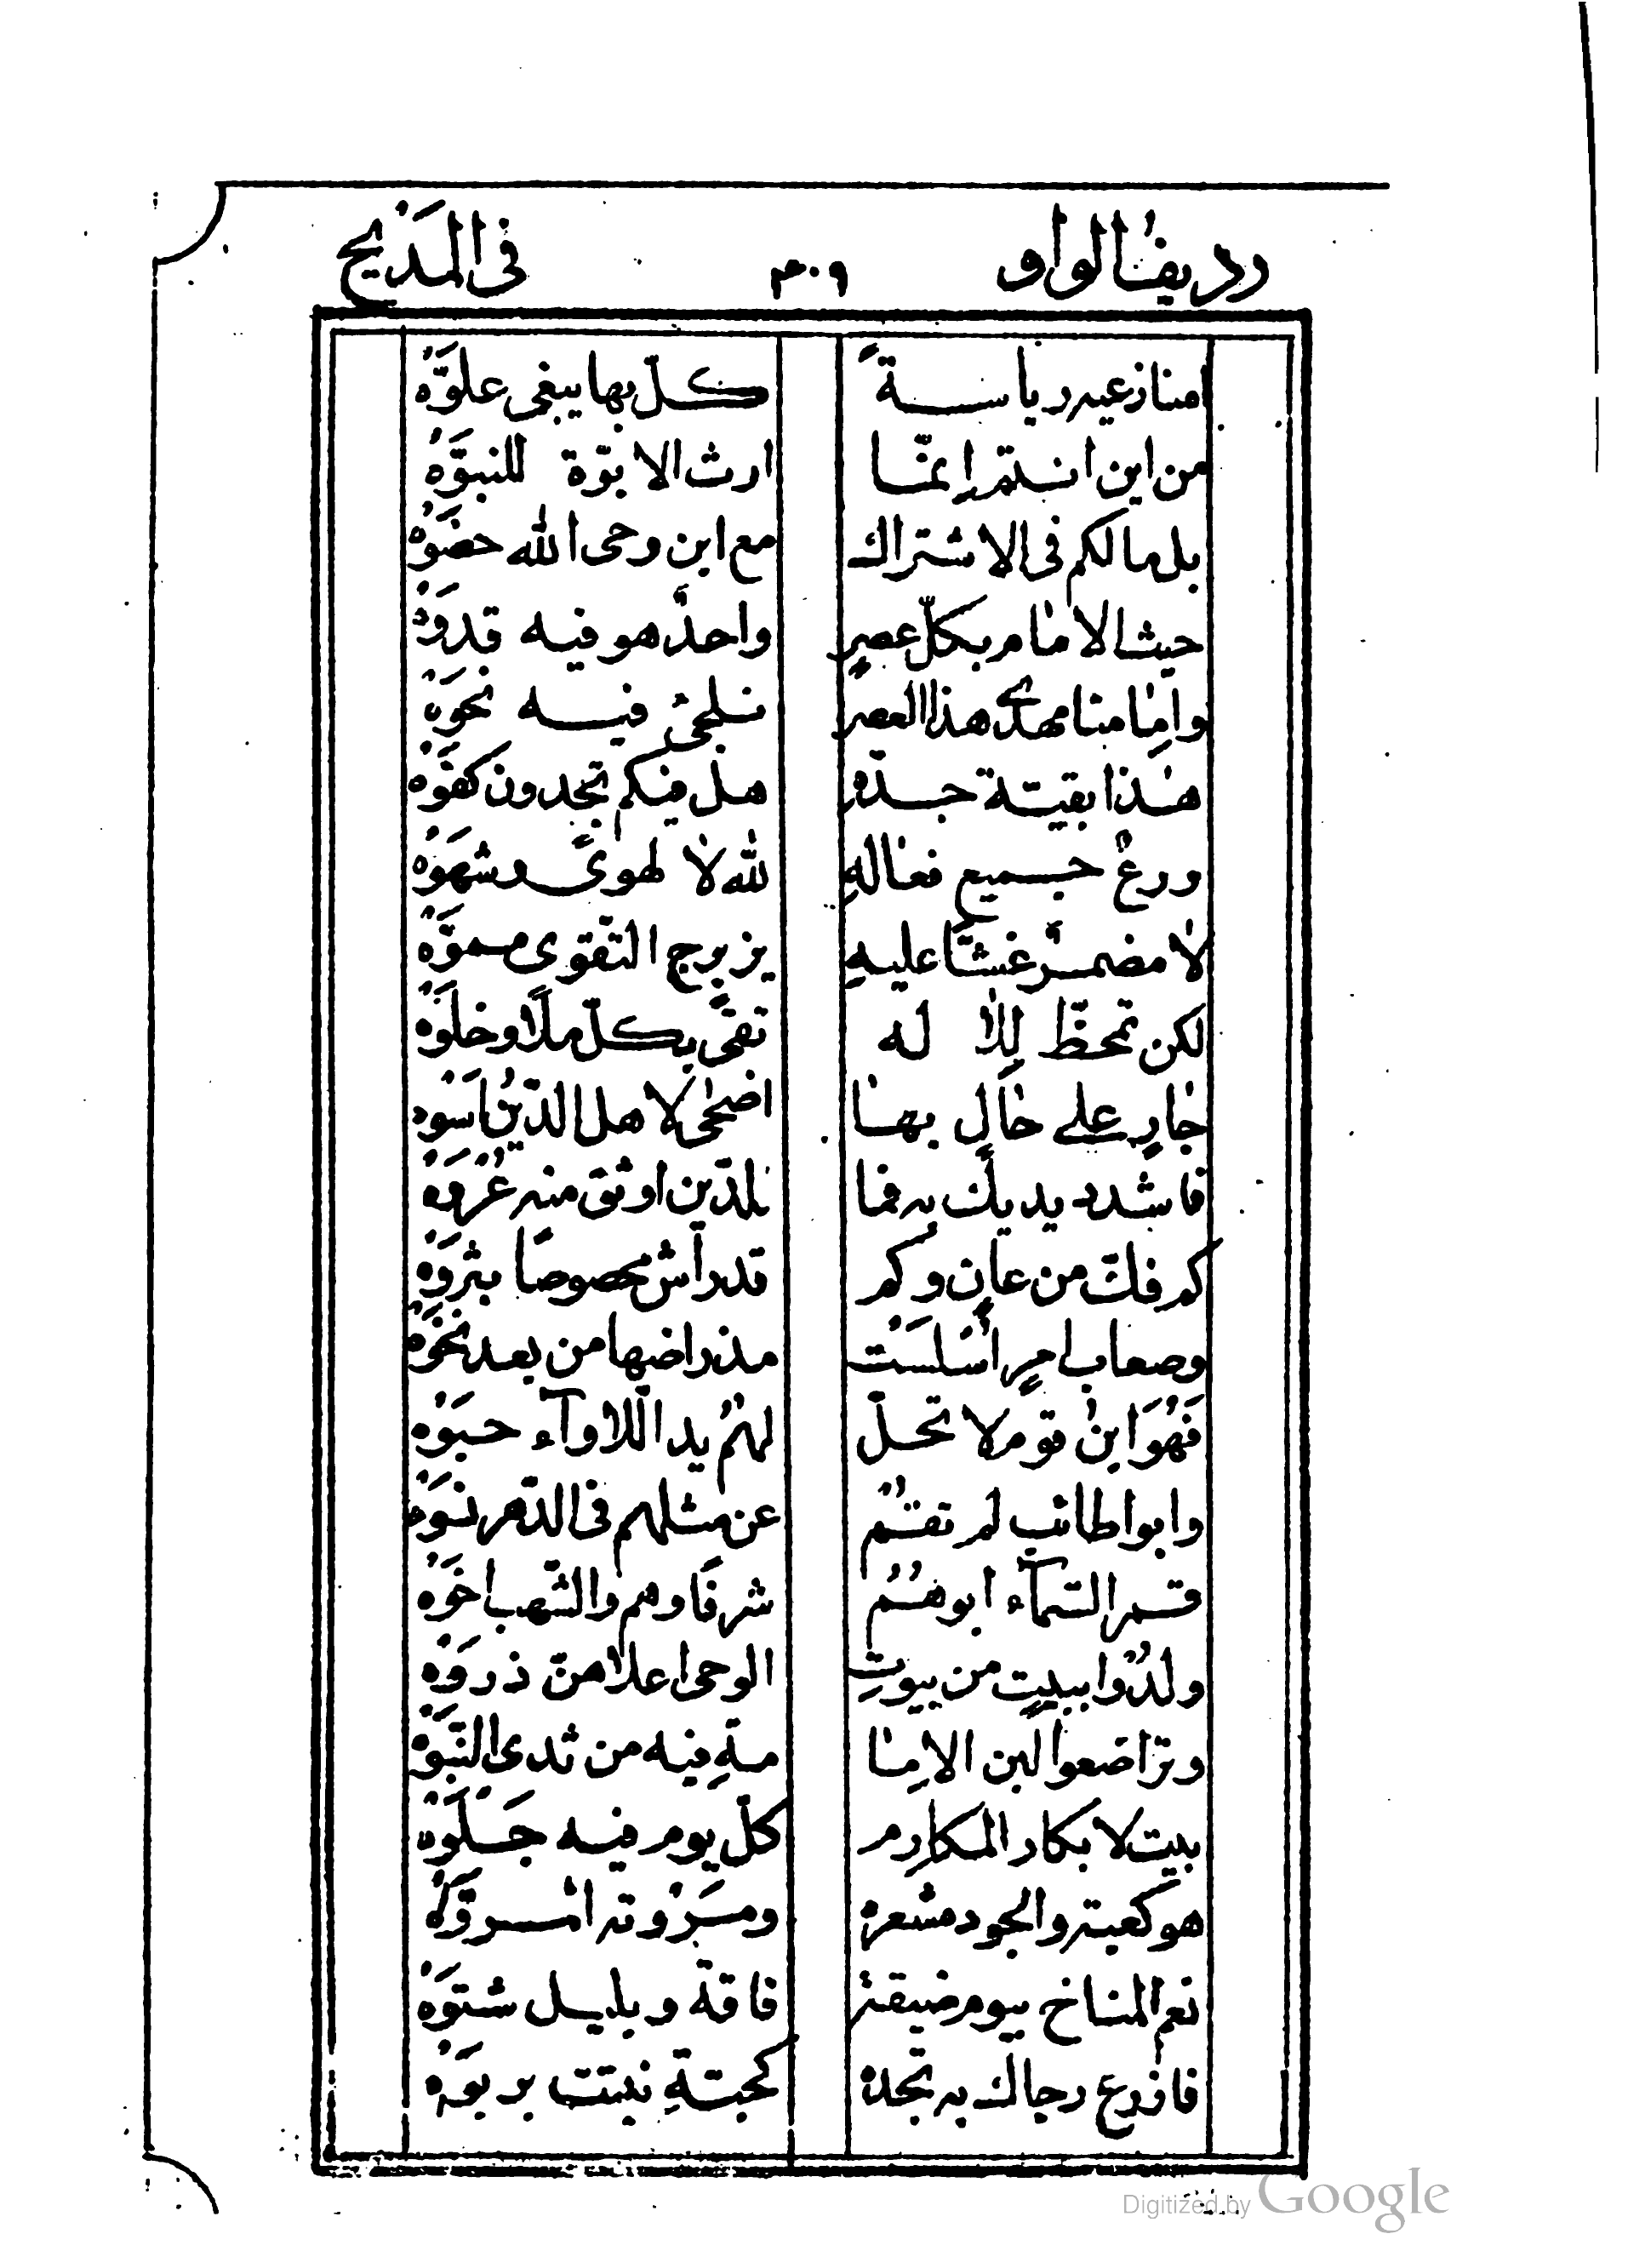 رديف الواو ٣٠٩ في المديح
امنازعيه رياسةً كلّ بها يبغى علوَّه
من اين انستم انمّا ارث الابوّة للنبوَّه
بل مالكم فى الاشتراك مع ابن وحى الله حضوَه
حيث الامام بكلّ عصرٍ واحدٌ هو فيه قدوَه
وامامنا مهدىّ هذا العصر نلتجئ فيه نحوَه
هذا بقيّة جدّه هل فيكم تجدون كفوَه
ورعٌ جميع فعاله لله لا لهوىً وشهوَه
لا مضمرٌ غشّا عليه بزبرج التقوى مموَّه
لكن تمحّظ للاله تقىً بكلّ ملًا وخلوَه
جارٍ على حالٍ بها اضحى لاهل الدّين اسوَه
فاشدد يديك به فما للدّين اوثق منه عُروَه
كم فكّ من عانٍ وكم قد راش مخصوصًا بثروَه
وصعاب امرٍ أسلسَت مذ راضها من بعد نخوَه
فَهُوَ ابنُ قوم لا تحلّ لهُم يد اللاوآء حبوَه
وابوا طائب لم تقُم عن مثلهم فى الدّهر نسوَه
قمر السّمآء ابوهُم شرفًا وهم والشّهب اخوَه
ولدُوا ببيتٍ من بيوتِ الوحى اعلاهنّ ذروَه
وتراضعوا لبن الاما مةِ فيه من ثدى النّبوَّه
بيت لابكار المكارم كلّ يوم فيه جَلوَه
هو كعبة والجود مشعره ومَروته المروَّه
نعم المناخ بيوم ضيقة فاقة وبليل شتوَه
فازرع رجاك به تجده كحبّةٍ نبتت بربوَه
Digitized by Google